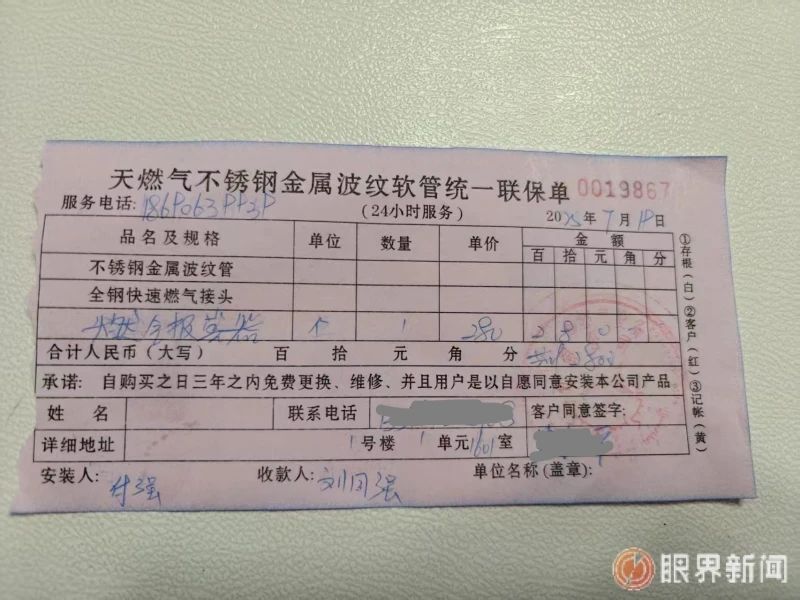 天燃气不锈钢金属波纹软管统一联保单 0019867
服务电话: (24小时服务) 2025年7月19日
品名及规格 单位 数量 单价 金额
百 拾 元 角 分
不锈钢金属波纹管
全钢快速燃气接头
报警器 个 1 280 2 8 0
合计人民币（大写） 百 拾 元 角 分
承诺: 自购买之日三年之内免费更换、维修、并且用户是以自愿同意安装本公司产品
姓 名 联系电话 客户同意签字:
详细地址 1号楼 1单元1601室
安装人: 付强 收款人: 刘国强 单位名称(盖章):
①存根(白)②客户(红)③记帐(黄)
眼界新闻